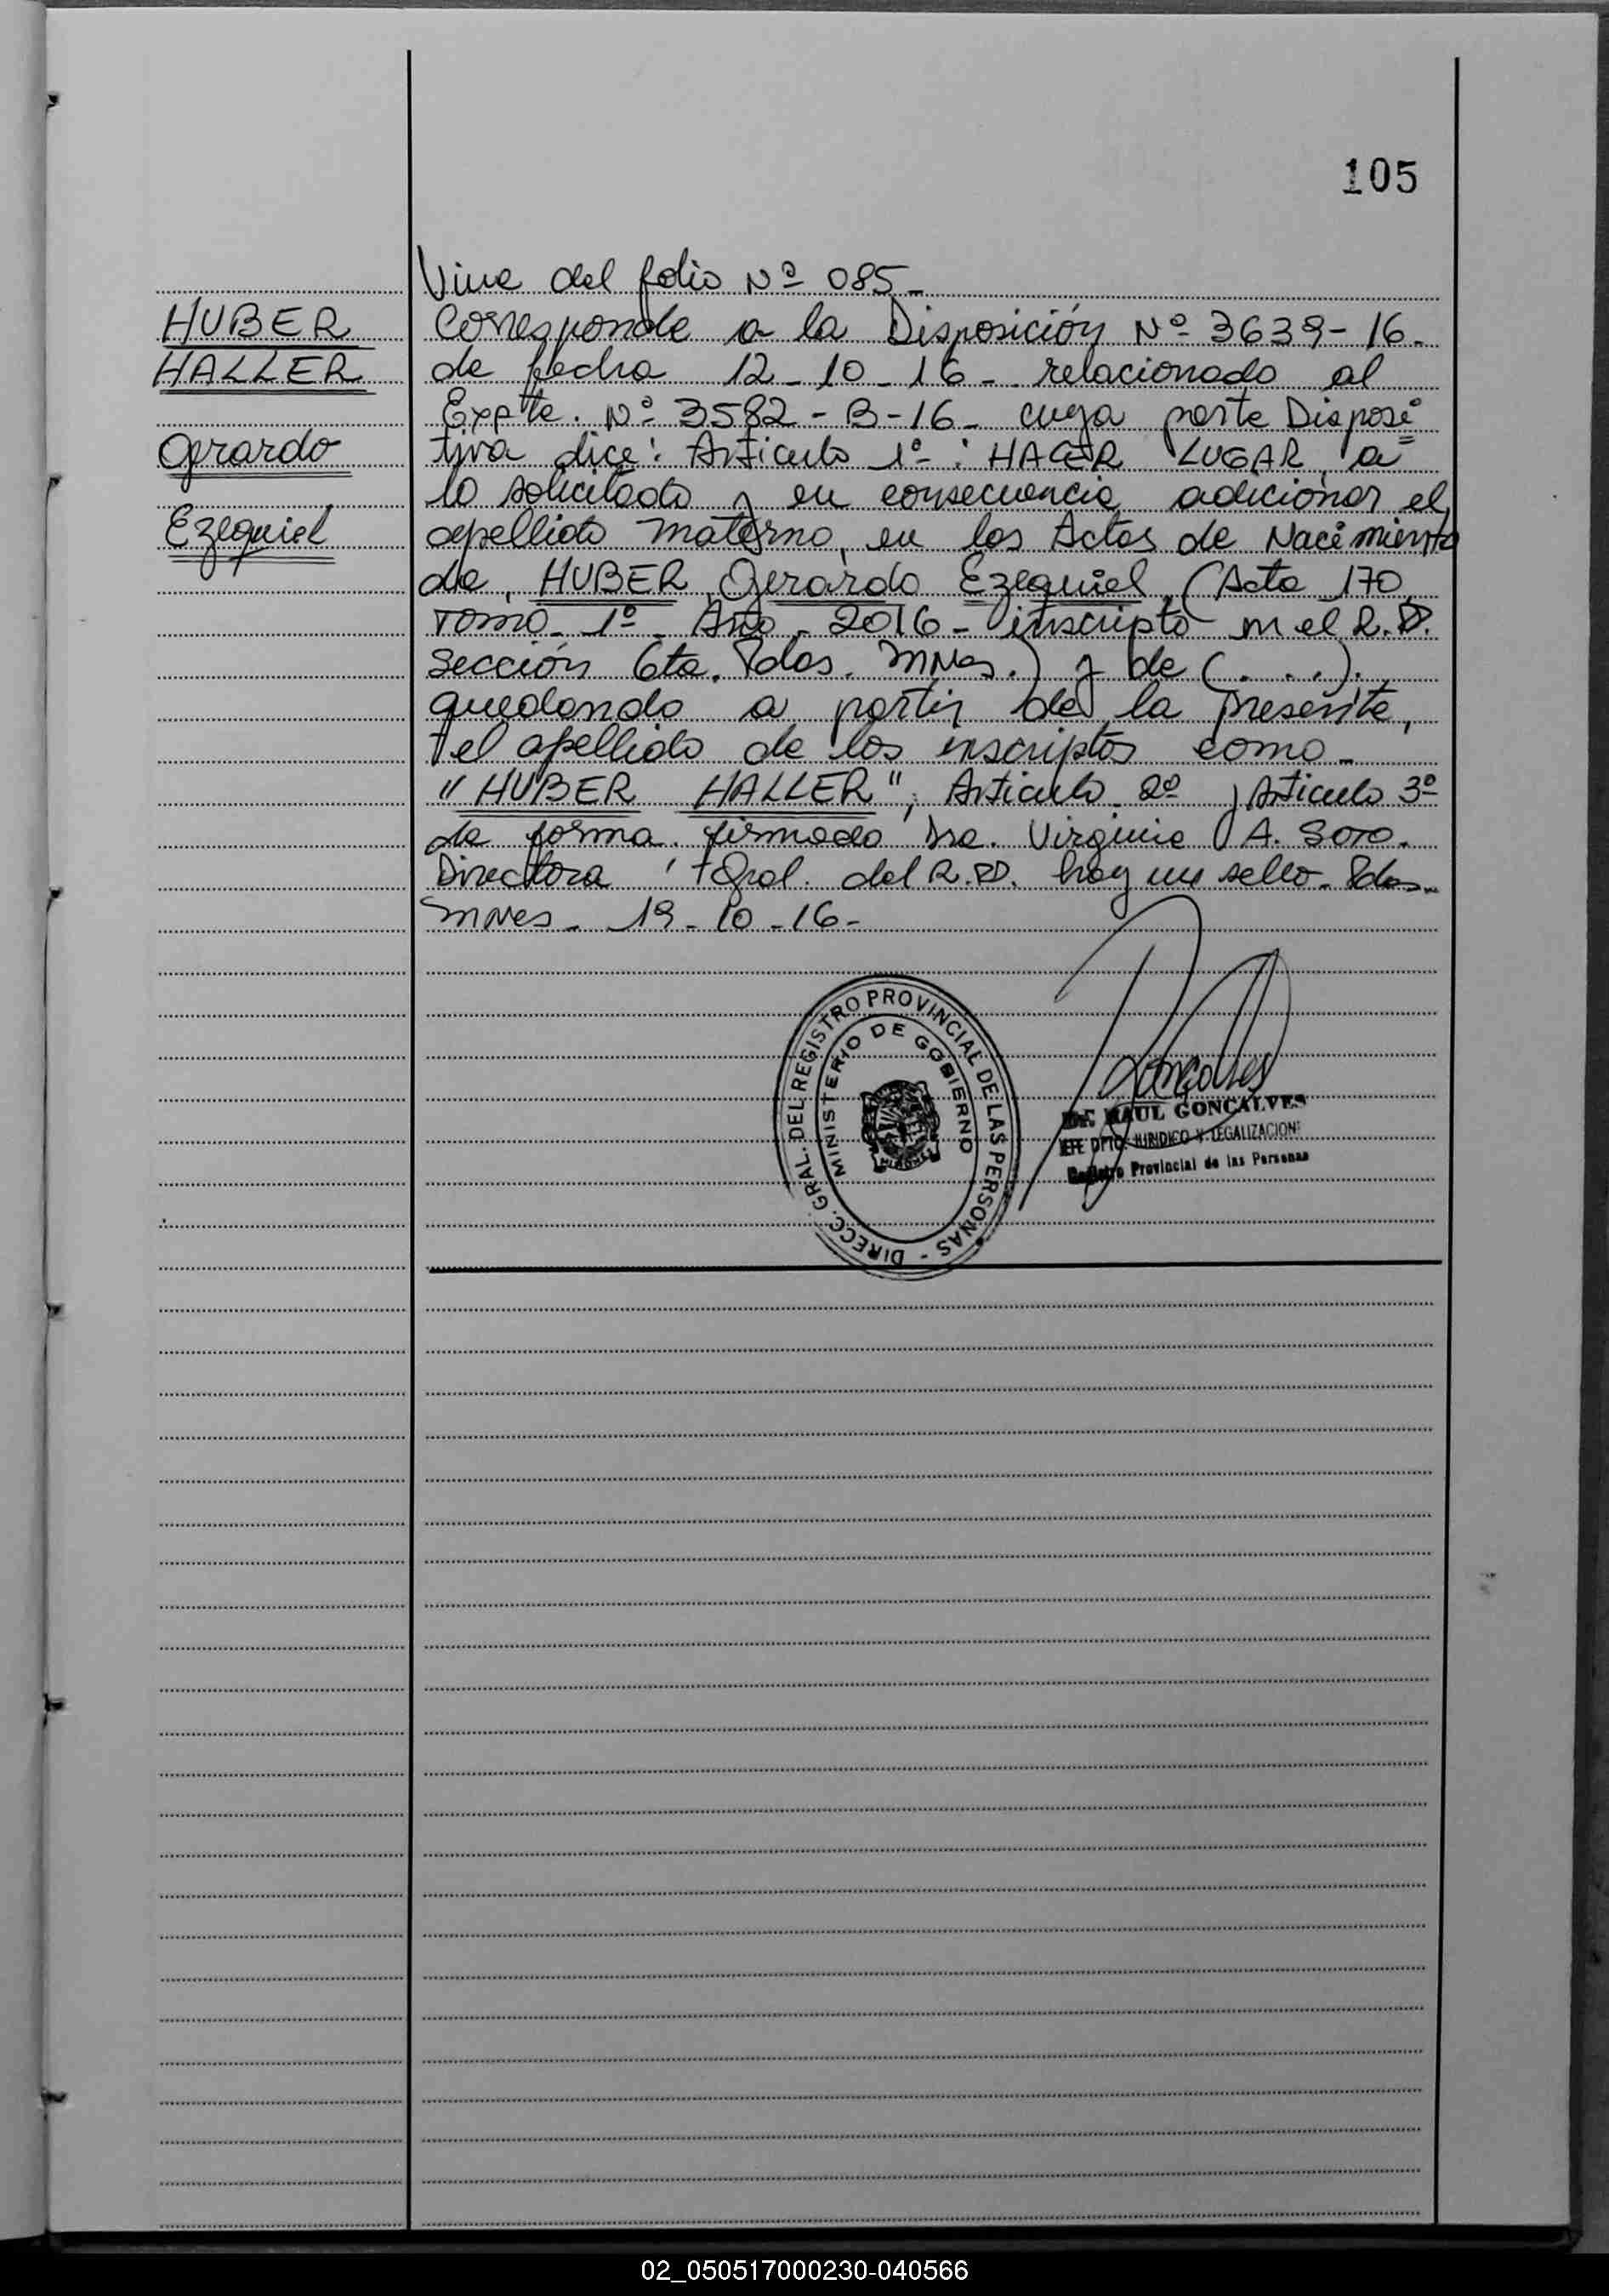 105
Vine del folio Nº 085-
HUBER
HALLER
Gerardo
Ezequiel
Corresponde a la Disposición Nº 3639-16-
de fecha 12-10-16- relacionado al
Expte. Nº 3582-B-16- cuya parte Disposi
tiva dice: Artículo 1º: HACER LUGAR a
lo solicitado y en consecuencia adicionar el
apellido materno, en las Actas de Nacimiento
de HUBER, Gerardo Ezequiel (Acta 170
Tomo 1º Año 2016- inscripto en el R.P.
Sección 6ta. Pdas. Mnes.) y de (...).
quedando a partir de la presente,
el apellido de los inscriptos como-
"HUBER HALLER", Artículo 2º y Artículo 3º
de forma. firmado Dra. Virginia A. Soto.
Directora Gral. del R.P. hay un sello. Pdas-
Mnes- 19-10-16-
DIRECC. GRAL. DEL REGISTRO PROVINCIAL DE LAS PERSONAS -
MINISTERIO DE GOBIERNO
MISIONES
Dr. RAUL GONCALVES
JEFE DPTO. JURIDICO Y LEGALIZACION
Registro Provincial de las Personas
02_050517000230-040566